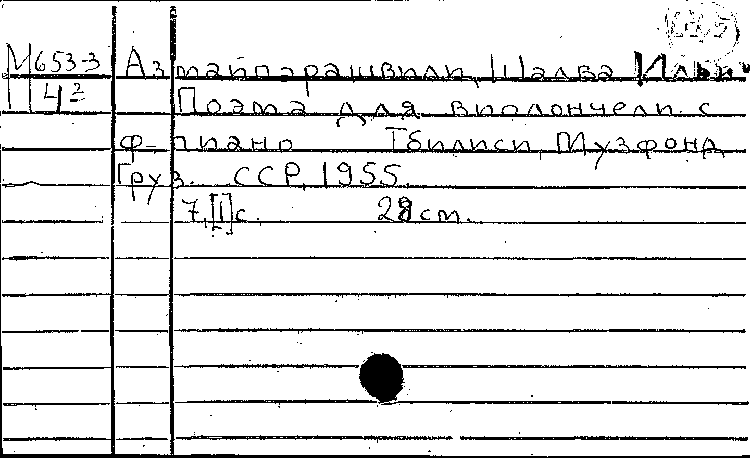 М653-3 Азмайпарашвили, Шалва Ильи
42 Поэма для виолончели с
ф-пиано Тбилиси, Музфонд
Груз. ССР, 1955.
7,[1]с. 28 см.